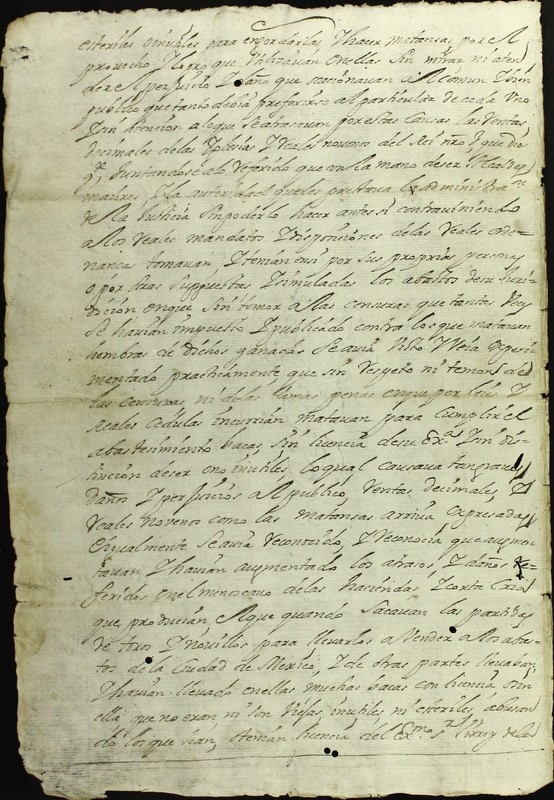 esteriles o inutiles para engordarlas, Y hacer matansas por el
provecho, Y logro que utilizavan en ellas sin mirar ni aten
der el perjuicio Y daño que ocacionavan al comun Y bien
publico que tanto debia preferirse al particular de cada uno
Y sin atencion a lo que se atrasavan por estas causas las Rentas
decimales de las Yglesias Y Reales novenos del Rei nro sr que Dios
ge, Juntandose a lo referido que en la mano de ser Alcaldes
maiores, Y la autoridad que les prestava la administraon
de la Justicia sin poderlo hacer antes si contraviniendo
a los Reales mandatos Y disposiciones de las Reales orde-
nanzas tomavan, Y tenian en si por sus proprias personas
o por otras supuestas Y simuladas los abastos de su Juris-
diccion en que sin temor a las censuras que tantas veces
se havian impuesto Y publicado contra los que matavan
hembras de dichos ganados se avia visto Y veia experi-
mentado practicamente que sin respeto ni temor de
las censuras ni de las demas penas en que por leies Y
Reales cedulas incurrian matavan para cumplir el
abastesimiento bacas, sin licencia de su Exa Y sin dis-
tincion de ser o no inutiles, lo qual causava tan graves
daños Y perjuicios al publico, Rentas decimales, Y
Reales novenos como las matansas arriva expresadas
Y igualmente se avia reconosido, Y reconocia que aumen
tavan Y havian augmentado los atrasos, Y daños re-
feridos en el menoscavo de las haciendas, Y corta cria
que producian el que quando sacavan las partidas
de toros Y novillos para llevarlos a vender a los abas-
tos de la Ciudad de Mexico, Y de otras partes llevaban,
Y havian llevado en ellas muchas bacas con licencia o sin
ella que no eran, ni son viejas, inutiles, ni esteriles, abusan
do los que sean, o tenian licencia del Exmo Sr Virrey de la